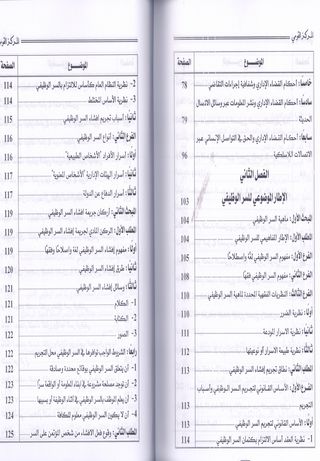 المركز القومي
الموضوع
الصفحة
خامسا: أحكام القضاء الإداري وشفافية إجراءات التقاضي 78
سادسا: أحكام القضاء الإداري ونشر المعلومات عبر وسائل الاتصال
الحديثة 79
سابعا: أحكام القضاء الإداري والحق في التواصل الإنساني عبر
الاتصالات اللاسلكية 96
الفصل الثاني
الإطار الموضوعي للسر الوظيفي 103
المبحث الأول: ماهية السر الوظيفي 104
المطلب الأول: الإطار المفاهيمي للسر الوظيفي 104
الفرع الأول: مفهوم السر الوظيفي لغة واصطلاحا 105
الفرع الثاني: مفهوم السر الوظيفي فقها 108
الفرع الثالث: النظريات الفقهية المحددة لماهية السر الوظيفي 110
أولا: نظرية الضرر 110
ثانيا: نظرية الأسرار المودعة 111
ثالثا: نظرية طبيعة الأسرار أو نوعيتها 112
المطلب الثاني: نطاق تجريم إفشاء السر الوظيفي 113
الفرع الأول: الأساس القانوني لتجريم السر الوظيفي وأسباب
التجريم 113
أولا: الأساس القانوني لتجريم السر الوظيفي 113
1- نظرية العقد أساس الالتزام بكتمان السر الوظيفي 114
المركز القومي
الموضوع
الصفحة
2- نظرية النظام العام كأساس للالتزام بالسر الوظيفي 114
3- نظرية الأساس المختلط 114
ثانيا: أسباب تجريم إفشاء السر الوظيفي 115
الفرع الثاني: أنواع السر الوظيفي 116
أولا: أسرار الأفراد "الأشخاص الطبيعية" 116
ثانيا: أسرار الهيئات الإدارية "الأشخاص المعنوية" 117
ثالثا: أسرار الدفاع عن الدولة 117
المبحث الثاني: أركان جريمة إفشاء السر الوظيفي 119
المطلب الأول: الركن المادي لجريمة إفشاء السر الوظيفي 119
أولا: مفهوم إفشاء السر الوظيفي لغة واصطلاحا وفقها 119
ثانيا: طرق إفشاء السر الوظيفي 120
ثالثا: وسائل إفشاء السر الوظيفي 121
1- الكلام 121
2- الكتابة 121
3- الصور 122
رابعا: الشروط الواجب توافرها في السر الوظيفي محل التجريم 122
1- أن يتعلق السر الوظيفي بوقائع محددة وصادقة 122
2- أن توجد مصلحة مشروعة في إبقاء المعلومة أو الواقعة سرا 123
3- أن يعلم الموظف بالسر الوظيفي في أثناء الوظيفة أو بسببها 123
4- أن لا يكون السر الوظيفي معلوم للكافة 124
المطلب الثاني: وقوع فعل الإفشاء من شخص المؤتمن على السر 125